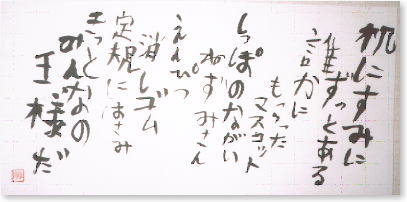 机にすみに
ずっとある
誰かに
もらった
マスコット
しっぽのながい
ねずみさん
えんぴつ
消しゴム
定規にはさみ
きっと
みんなの
王様だ